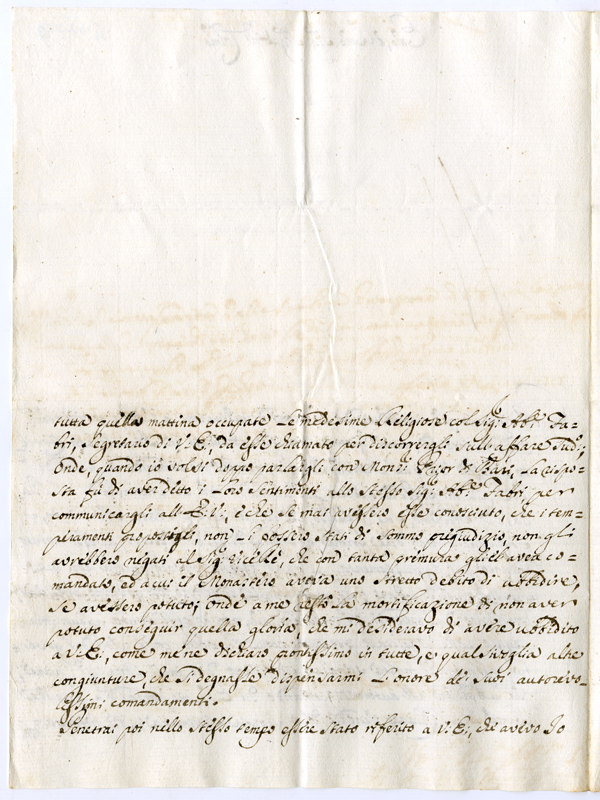 tutta quella mattina occupate le medesime Religiose col Sig.r Ab.e Fa=
bri, Segretario di V. E., da esse chiamato per discorrergli sull'affare sud.o;
Onde, quando io volsi doppo parlargli con Mons.r di Bari, la rispo=
sta fù di aver detto i loro sentimenti allo stesso Sig.r Ab.e Fabri per
communicargli all'E. V., e che se mai avessero esse conosciuto, che i tem=
peramenti propostigli, non li possero stati di sommo pregiudizio, non gli
avrebbero negati al Sig.r Viceré, che con tanta premura gliel'avea co=
mandato, ed a cui il Monastero averia uno stretto debito di ubbidire,
se avessero potuto; Onde a me restò la mortificazione di non aver
potuto conseguir quella gloria, che mi desideravo di avere ubbidito
a V. E., come me ne dichiaro prontissimo in tutte, e qualsivoglia altre
congiunture, che si degnasse dispensarmi l'onore de' suoi autorevo=
lissimi comandamenti.
Penetrai poi nello stesso tempo essere stato riferito a V. E., che avevo Io